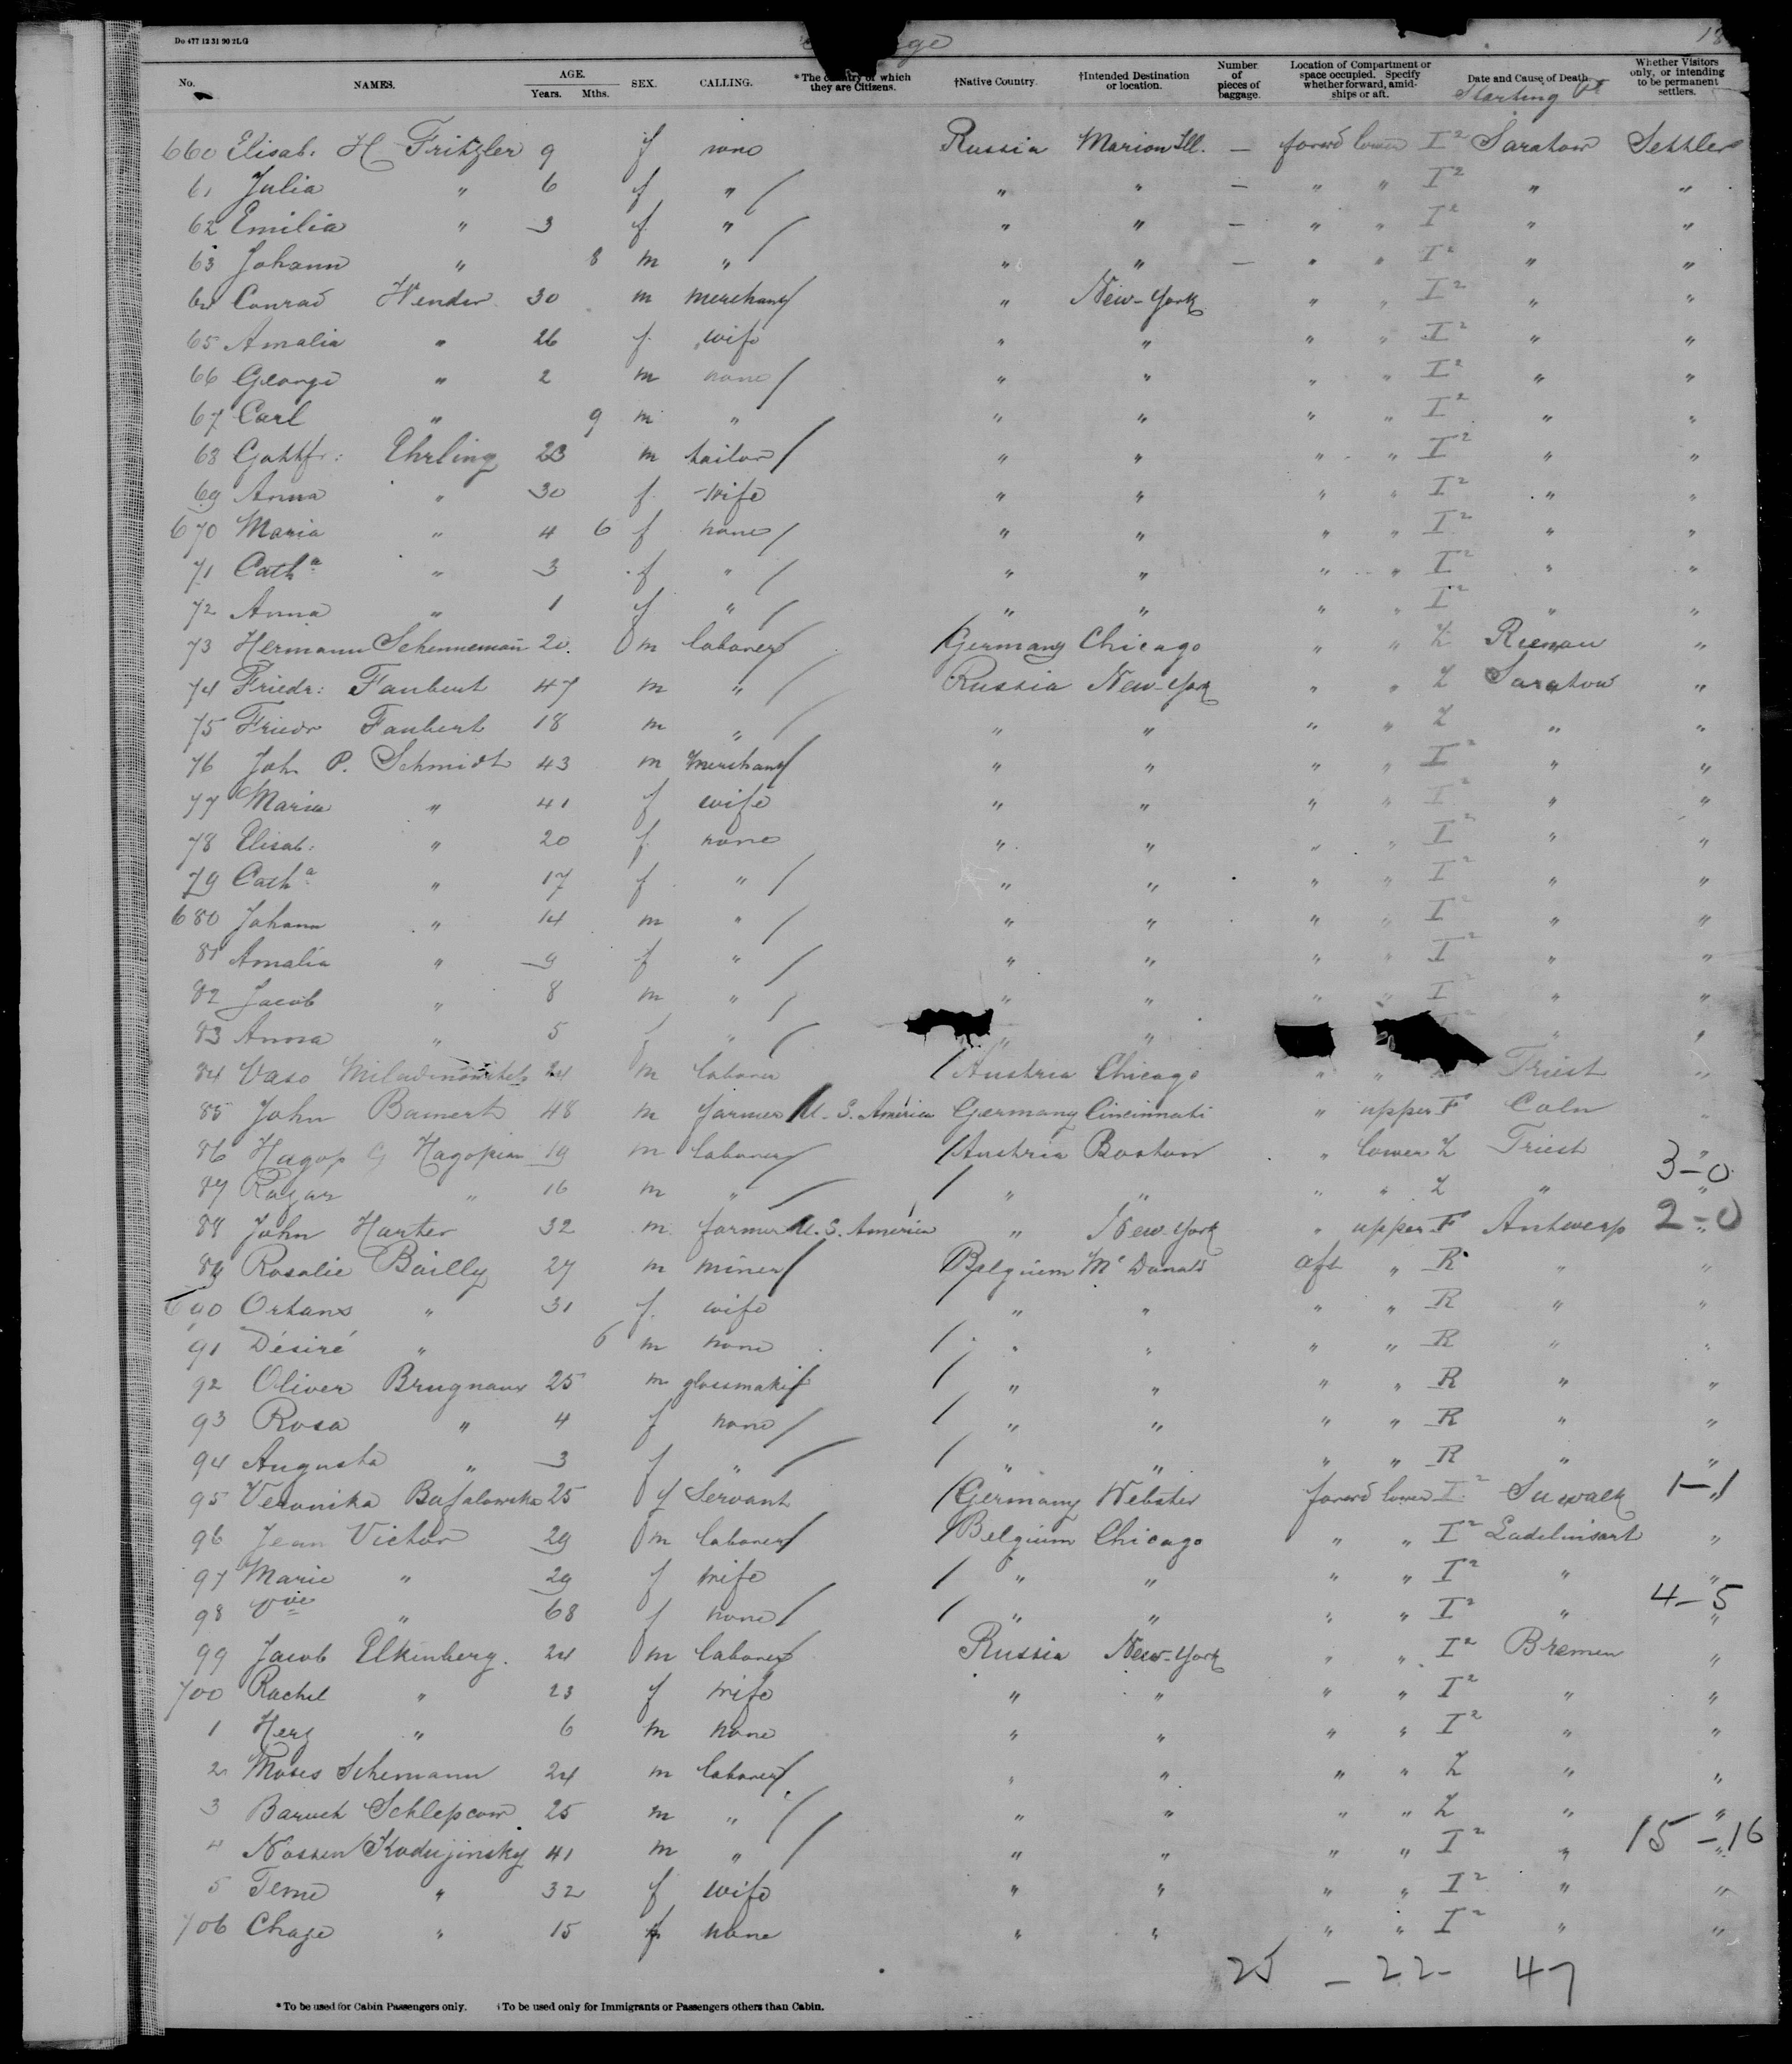 Do 477 12 31 90 2LG
18
No. NAMES. AGE. Years. Mths. SEX. CALLING. *The country of which they are Citizens. †Native Country. †Intended Destination or location. Number of pieces of baggage. Location of Compartment or space occupied. Specify whether forward, amidships or aft. Date and Cause of Death. Whether Visitors only, or intending to be permanent settlers.
Starting Pt
660 Elisab. H Fritzler 9 f none Russia Marion Ill. — forwd lower I² Saratow Settler
61 Julia " 6 f " " " — " " I² " "
62 Emilia " 3 f " " " — " " I² " "
63 Johann " 8 m " " " — " " I² " "
64 Conrad Wender 30 m merchant " New-York " " I² " "
65 Amalia " 26 f. wife " " " " I² " "
66 George " 2 m none " " " " I² " "
67 Carl " 9 m " " " " " I² " "
68 Gottfr: Ehrling 23 m tailor " " " " I² " "
69 Anna " 30 f. wife " " " " I² " "
670 Maria " 4 6 f none " " " " I² " "
71 Cathª " 3 f " " " " " I² " "
72 Anna " 1 f " " " " " I² " "
73 Hermann Schennemann 20. m laborer Germany Chicago " " Z "
74 Friedr: Faubert 47 m " Russia New-York " " Z Saratow "
75 Friedr Faubert 18 m " " " " " Z " "
76 Joh P. Schmidt 43 m merchant " " " " I² " "
77 Maria " 41 f wife " " " " I² " "
78 Elisab: " 20 f. none " " " " I² " "
79 Cathª " 17 f " " " " " I² " "
680 Johann " 14 m " " " " " I² " "
81 Amalia " 9 f " " " " " I² " "
82 Jacob " 8 m " " " " " I² " "
83 Anna " 5 f " " " " "
84 Vaso 24 m laborer Austria Chicago " " Triest "
85 John Bamert 48 m farmer U. S. America Germany Cincinnati " upper F Coln "
86 Hagop G Hagopian 19 m laborer Austria Boston " lower Z Triest "
3-0
87 Razar " 16 m " " " " " Z " "
88 John Harter 32 m farmer U. S. America " New-York " upper F Antwerp "
2-0
89 Rosalie Bailly 27 m miner Belgium Mc Donald aft " R " "
690 Ortans " 31 f. wife " " " " R " "
91 Désiré " 6 m none " " " " R " "
92 Oliver Brugnaux 25 m glassmaker " " " " R " "
93 Rosa " 4 f none " " " " R " "
94 Augusta " 3 f " " " " " R " "
95 Veronika 25 f Servant Germany Webster forwd lower I² Suwalk "
1-1
96 Jean Victor 29 m laborer Belgium Chicago " " I² "
97 Marie " 29 f wife " " " " I² " "
98 Vve " 68 f none " " " " I² " "
4-5
99 Jacob Elkinberg. 24 m laborer Russia New-York " " I² Bremen "
700 Rachel " 23 f wife " " " " I² " "
1 Herz " 6 m none " " " " I² " "
2 Moses Schemann 24 m laborer " " " " Z " "
3 Baruch 25 m " " " " " Z " "
4 Nossen 41 m " " " " " I² " "
15-16
5 Teme " 32 f wife " " " " I² " "
706 Chage " 15 f none " " " " I² " "
25 - 22 - 47
*To be used for Cabin Passengers only. †To be used only for Immigrants or Passengers others than Cabin.